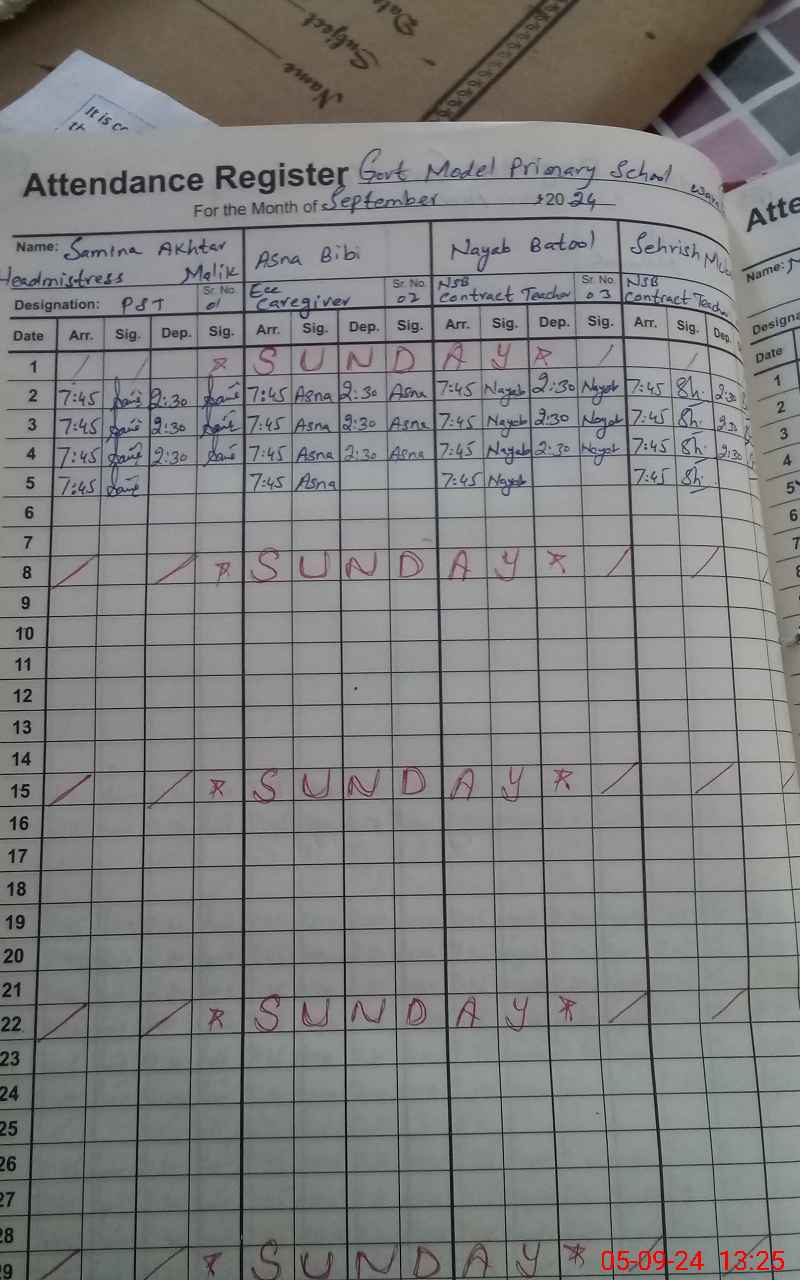 Name
Subject
Date
It is
Attendance Register Govt Model Primary School
For the Month of September 2024
Name: Samina Akhtar Asna Bibi Nayab Batool Sehrish
Headmistress Malik Sr. No. Ece Sr. No. NSB Sr. No. NSB
Designation: PST 01 Caregiver 02 Contract Teacher 03 Contract Teacher
Date Arr. Sig. Dep. Sig. Arr. Sig. Dep. Sig. Arr. Sig. Dep. Sig. Arr. Sig. Dep.
1 / / * S U N D A Y * / /
2 7:45 2:30 7:45 Asna 2:30 Asna 7:45 Nayab 2:30 Nayab 7:45 Sh. 2:30
3 7:45 2:30 7:45 Asna 2:30 Asna 7:45 Nayab 2:30 Nayab 7:45 Sh. 2:30
4 7:45 2:30 7:45 Asna 2:30 Asna 7:45 Nayab 2:30 Nayab 7:45 Sh. 2:30
5 7:45 7:45 Asna 7:45 Nayab 7:45 Sh.
6
7
8 / / * S U N D A Y * / /
9
10
11
12
13
14
15 / / * S U N D A Y * / /
16
17
18
19
20
21
22 / / * S U N D A Y * / /
23
24
25
26
27
28
29 / / * S U N D A Y * / /
Name:
Date
1
2
3
4
5
6
7
05-09-24 13:25